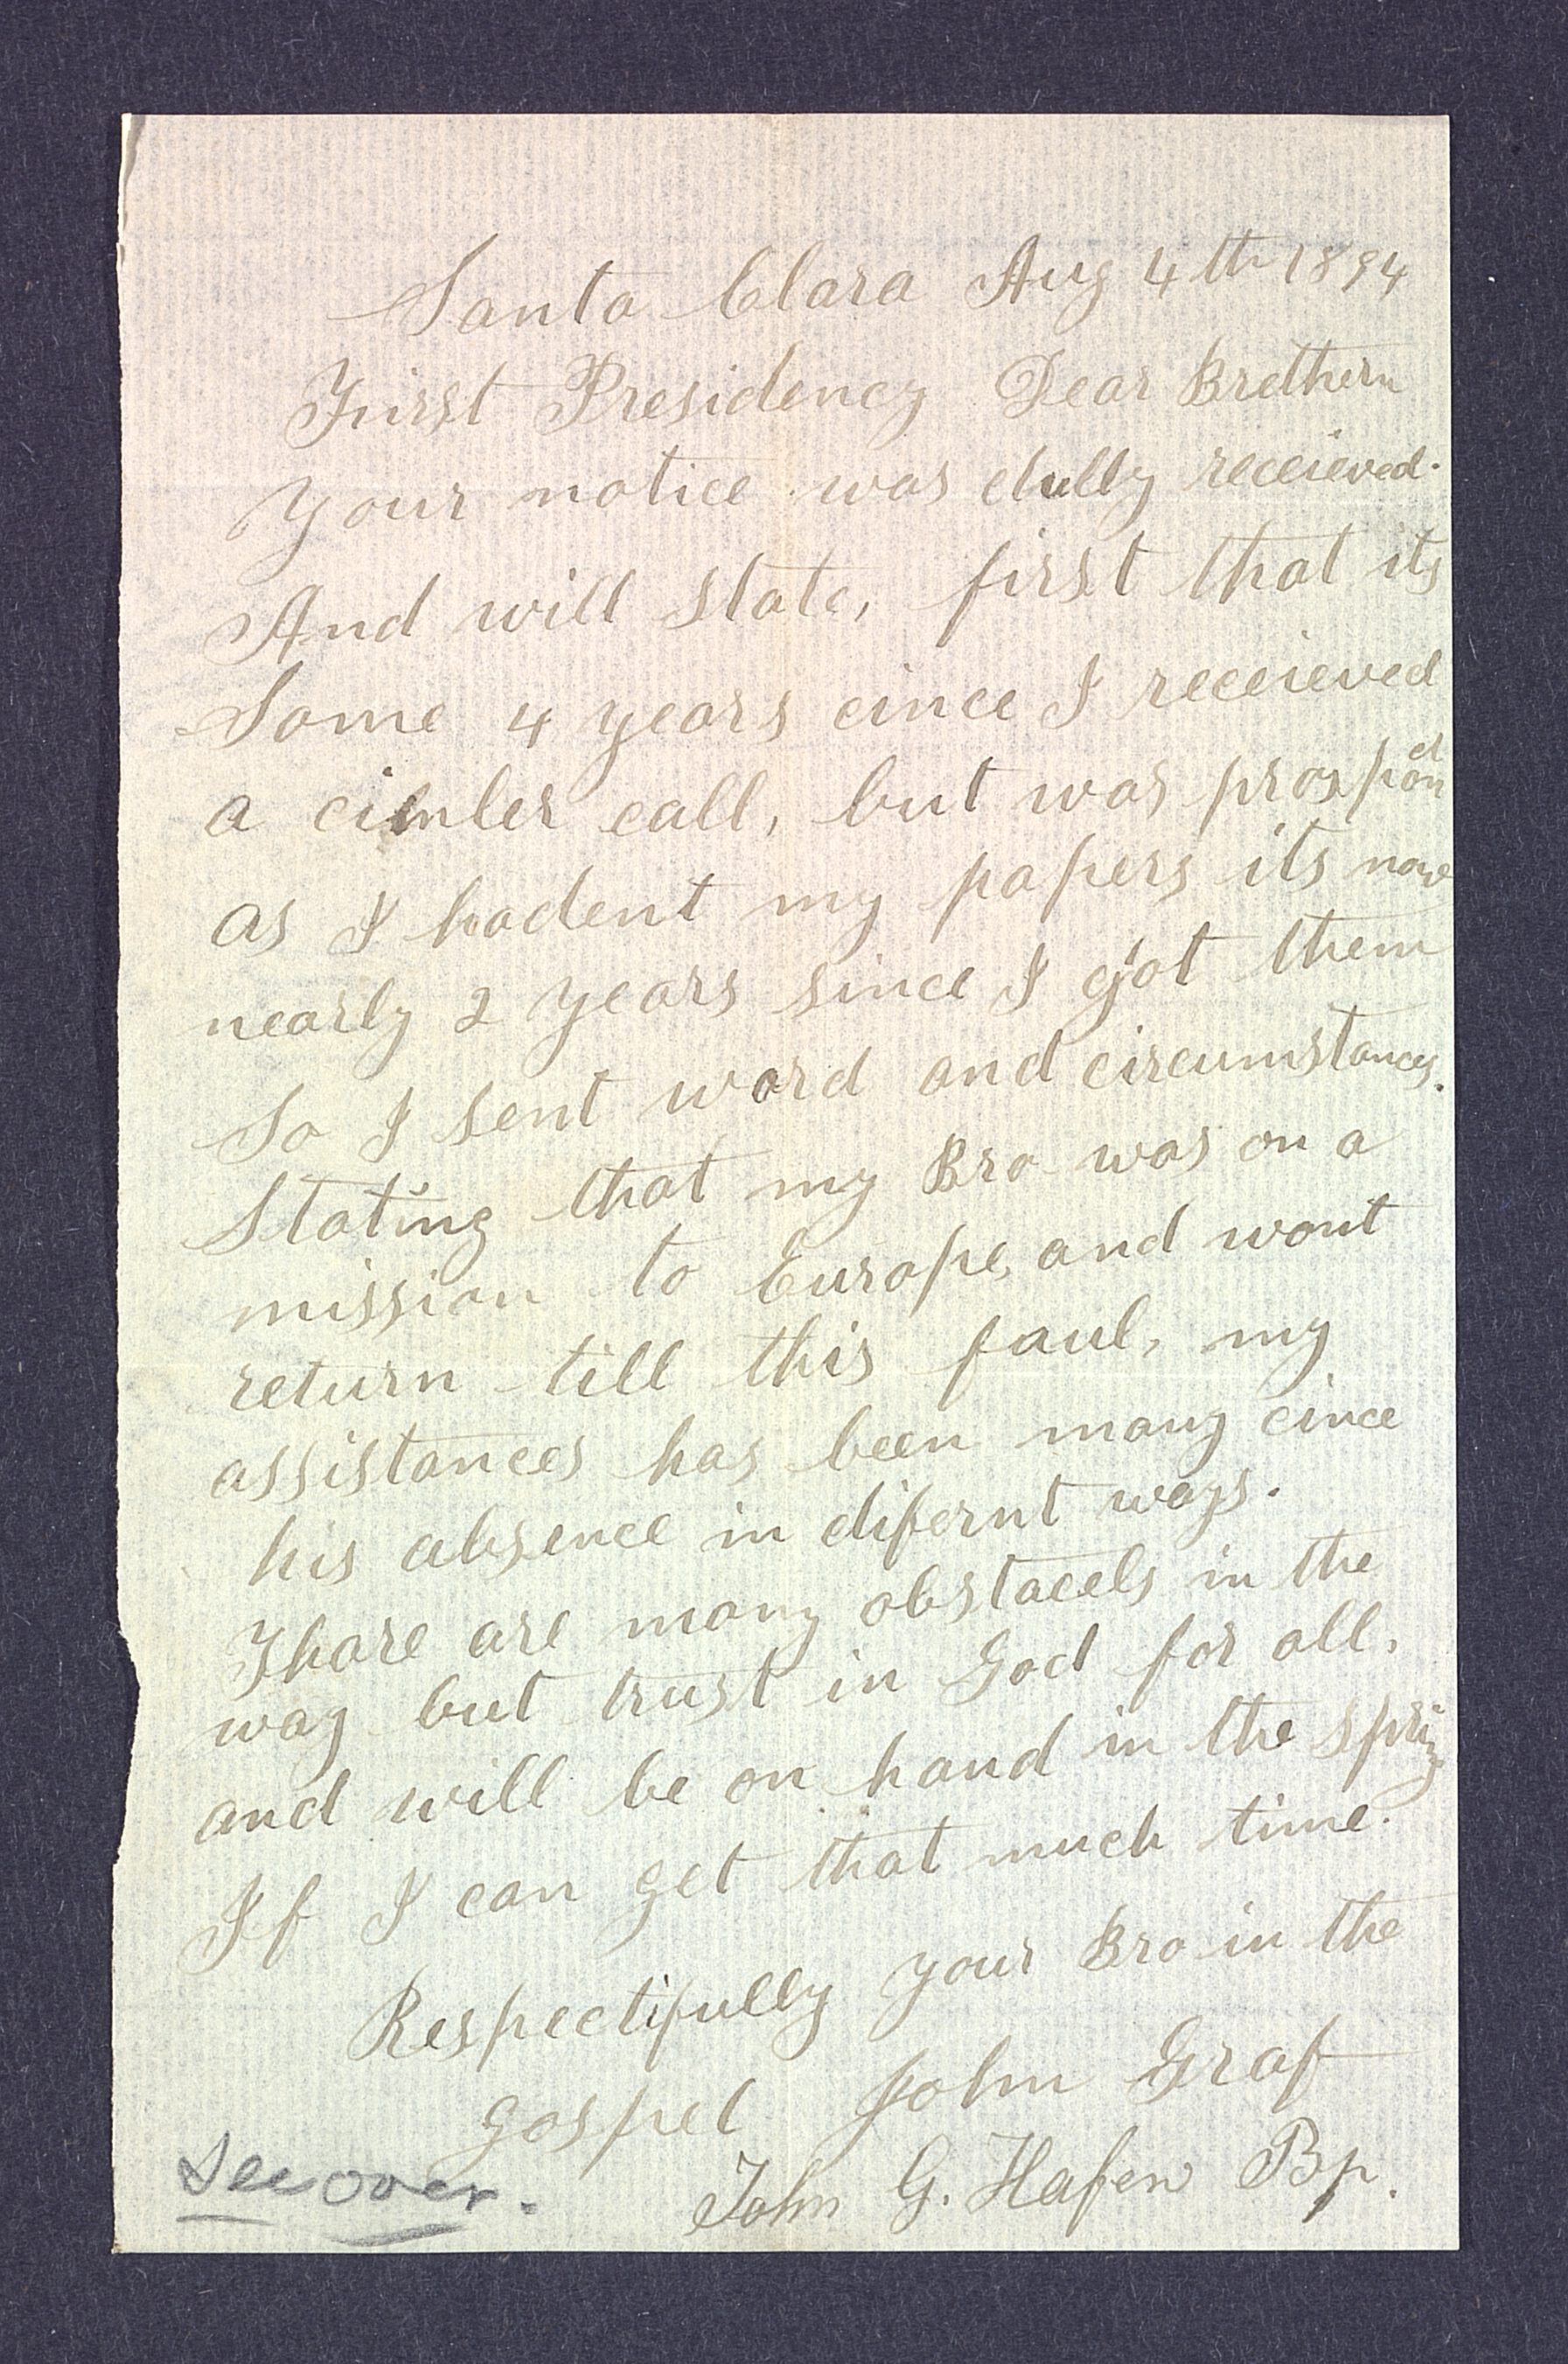 Santa Clara Aug 4th 1894
First Presidency Dear Brethern
Your notice was dully receieved.
And will state, first that its
Some 4 years cince I receieved
a cimler call, but was prospon
ed
as I hadent my papers its now
nearly 2 years since I got them
So I sent word and circumstances.
Stating that my Bro was on a
mission to Europe, and wont
return till this faul, my
assistances has been many cince
his absence in difernt ways.
Thare are many obstacels in the
way but trust in God for all.
and will be on hand in the spring
If I can get that much time.
Respectifully your Bro in the
Gospel John Graf
John G. Hafen Bp.
See over.